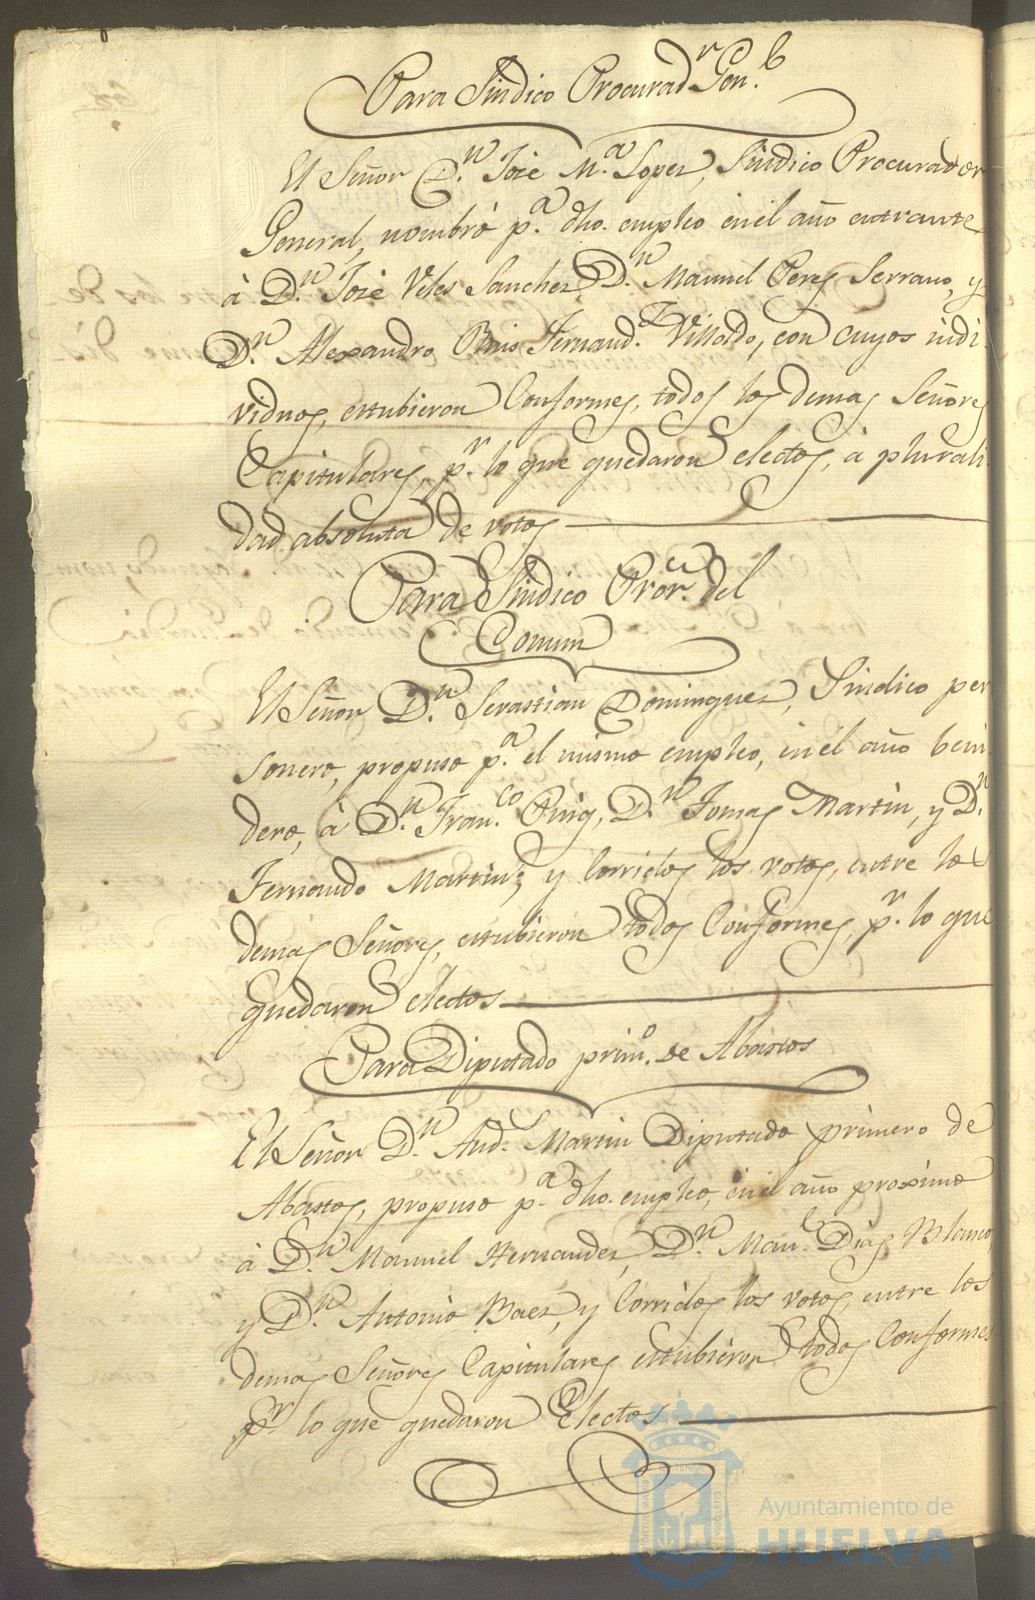 Para Sindico Procurad.r Gen.l
El Señor D.n José M.a Lopez, Sindico Procurador
General, nombró p.a dho. empleo en el año entrante
à D.n José Veles Sanchez, D.n Manuel Peres Serrano, y
D.n Alexandro Fernand.z Villoldo, con cuyos indi
viduos, estubieron Conformes, todos los demas Señores
Capitulares, p.r lo que quedaron electos, à plurali
dad absoluta de votos
Para Sindico Pror. del
Comun
El Señor D.n Sevastian Dominguez, Sindico per
sonero, propuso p.a el mismo empleo, en el año beni
dero, à D.n Fran.co Puig, D.n Tomas Martin, y D.n
Fernando Martinz, y Corridos los votos, entre los
demas Señores, estubieron todos Conformes, p.r lo que
quedaron electos
Para Diputado prim.o de Abastos
El Señor D.n And.s Martin Diputado primero de
Abastos, propuso p.a dho. empleo, en el año proximo
à D.n Manuel Hernandez, D.n Man.l Dias Blanco,
y D.n Antonio Baez, y Corridos los votos, entre los
demas Señores Capitulares estubieron todos Conformes
p.r lo que quedaron Electos
Ayuntamiento de
HUELVA